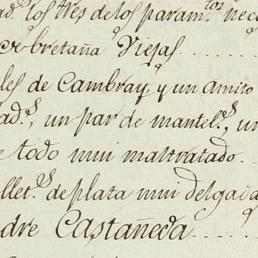 ad.s los tres de los param.tos nece
bretaña viejas
les de Cambray, y un amito
ad.s, un par de mantel.s, un
todo mui maltratado
llet.s de plata mui delgada
dre Castañeda